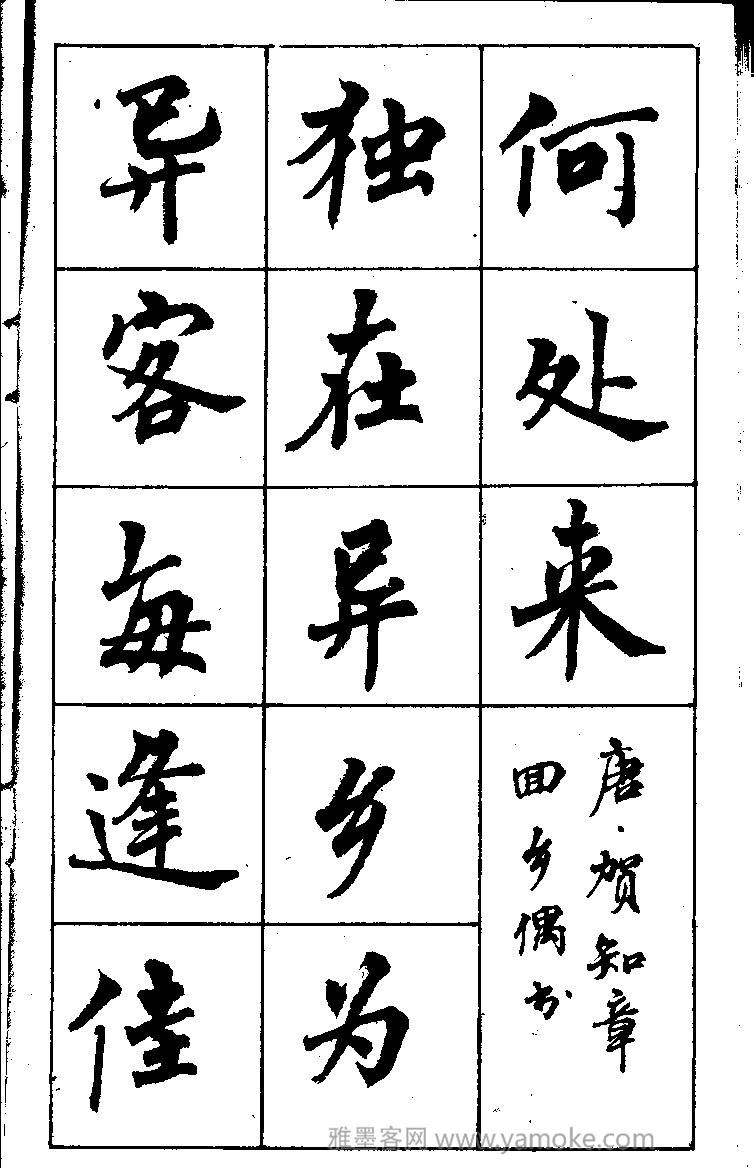 何处来
唐·贺知章
回乡偶书
独在异乡为
异客每逢佳
雅墨客网 www.yamoke.com